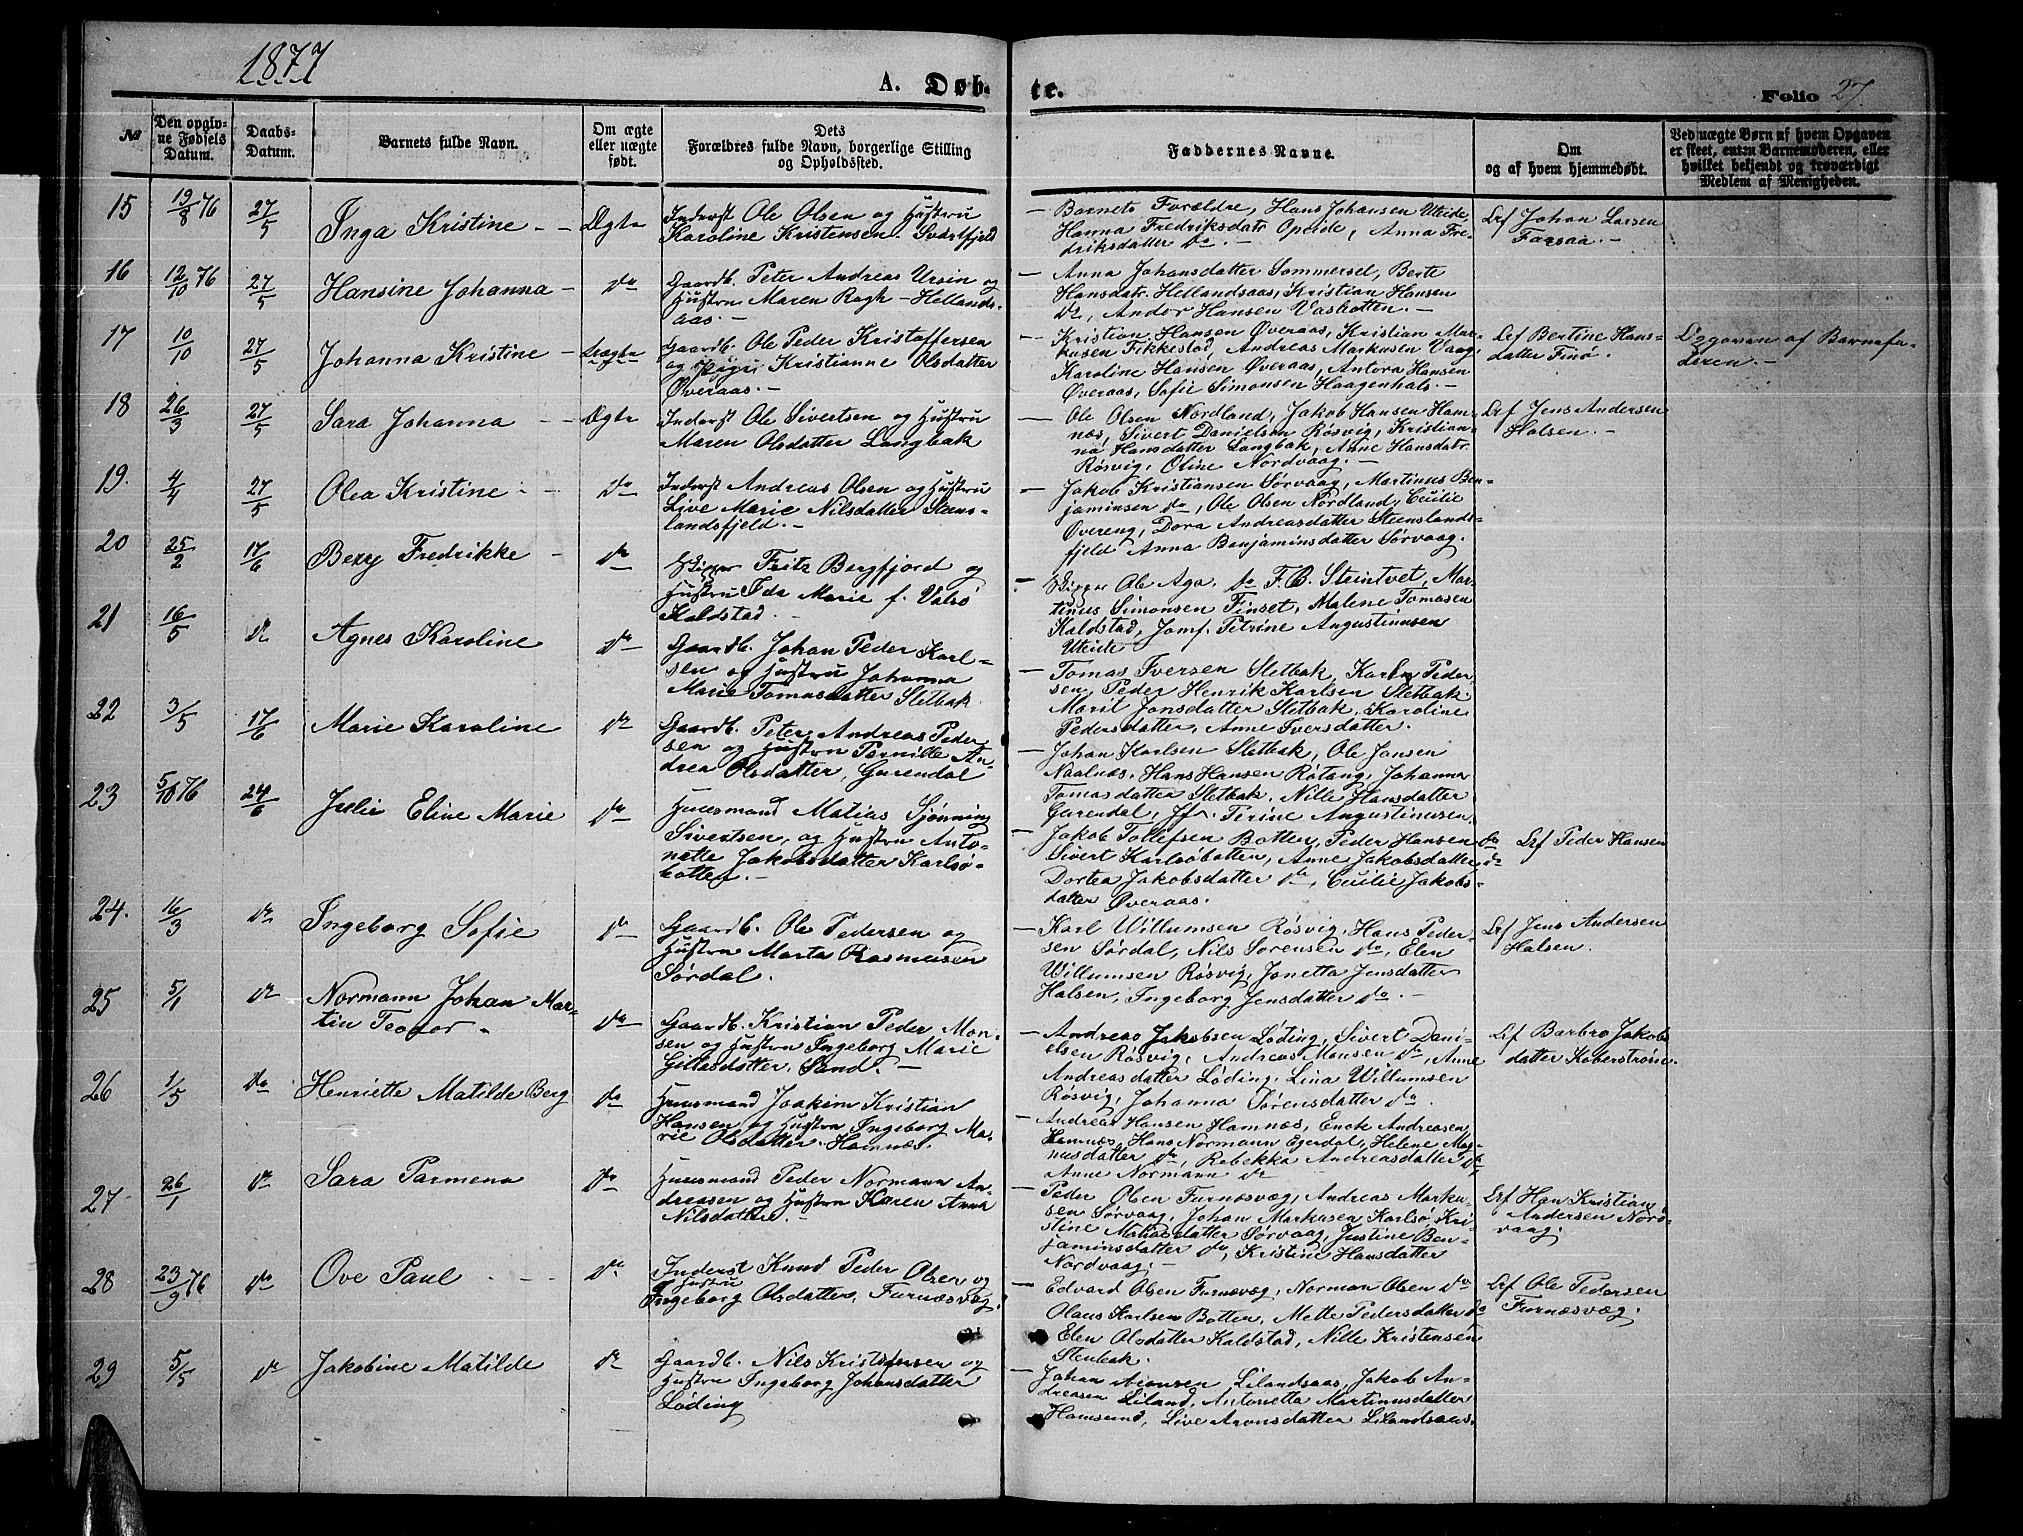 1877
A. Døb-
te.
Folio 27.
№
Den opgiv-
ne Fødsels
Datum.
Daabs-
Datum.
Barnets fulde Navn.
Om ægte
eller uægte
født.
Dets
Forældres fulde Navn, borgerlige Stilling
og Opholdssted.
Faddernes Navne.
Om
og af hvem hjemmedøbt.
Ved uægte Børn af hvem Opgaven
er skeet, enten Barnemoderen, eller
hvilket bekjendt og troværdigt
Medlem af Menigheden.
15 19/8 76 27/5 Inga Kristine - - Ægte
Inderst Ole Olsen og Hustru
Karoline Kristensen. Svartfjeld
- Barnets Forældre, Hans Johansen Uteide,
Hanna Fredriksdatr Opeide, Anna Fre-
driksdatter do. -
Lrf Johan Larsen
Farsaa. -
16 12/10 76 27/5 Hansine Johanna - do
Gaardb. Peter Andreas Ursin og
Hustru Maren Ragh - Hellands-
aas. -
- Anna Johansdatter Sommersel, Berte
Hansdatr. Hellandsaas, Kristian Hansen
do, Andor Hansen Vasbotten. -
17 10/10 27/5 Johanna Kristine - Uægte
Gaardb. Ole Peder Kristoffersen
og Pige Kristianne Olsdatter
Øveraas. -
- Kristian Hansen Øveraas, Kristian Mar-
kusen Fikkestad, Andreas Markusen Vaag
Karoline Hansen Øveraas, Antora Hansen
Øveraas, Sofie Simonsen Haagenhals. -
Lrf Bertine Hans-
datter Finø.
Opgaven af Barnefa-
deren. -
18 26/3 27/5 Sara Johanna - Ægte
Inderst Ole Sivertsen og Hustru
Maren Olsdatter Langbak
- Ole Olsen Nordland, Jakob Hansen Ham-
næs, Sivert Danielsen Røsvig, Kristian-
na Hansdatter Langbak, Anne Hansdatr.
Røsvig, Oline Nordvaag. -
Lrf Jens Andersen
Halsen. -
19. 4/4 27/5 Olea Kristine - - do
Inderst Andreas Olsen og Hustru
Live Marie Nilsdatter Stens-
landsfjeld. -
- Jakob Kristiansen Sørvaag, Martinus Ben-
jaminsen do, Ole Olsen Nordland, Cecilie
Overeng, Dora Andreasdatter Steenslands-
fjeld Anna Benjaminsdatter Sørvaag.
20 25/2 17/6 Berg Fredrikke - do
Skipper Fritz Bergfjord og
Hustru Ida Marie f. Valsø
Kaldstad. -
- Skipper Ole Aga, do F. B. Steintvet, Mar-
tinus Simonsen Finset, Malene Tomasen
Kaldstad, Jomf. Petrine Augustinusen
Uteide -
21 16/5 do Agnes Karoline do
Gaardb. Johan Peder Karl-
sen og Hustru Johanna
Marie Tomasdatter Sletbak.
- Tomas Iversen Sletbak, Karl Peder-
sen, Peder Henrik Karlsen Sletbak.
Marit Jonsdatter Sletbak, Karoline
Pedersdatter, Anne Iversdatter.
22 3/5 17/6 Marie Karoline do
Gaardb. Peter Andreas Peder-
sen og Hustru Pernille An-
drea Olsdatter, Gurendal
- Johan Karlsen Sletbak, Ole Jonsen
Naalnæs, Hans Hansen Røtang, Johanna
Tomasdatter Sletbak, Nille Hansdatter
Gurendal, Jfr. Perine Augustinusen.
23 5/10 76 24/6 Julie Eline Marie do
Huusmand Matias Sjønning
Sivertsen, og Hustru Anto-
nette Jakobsdatter Karlsø-
botten. -
- Jakob Tollefsen Botten, Peder Hansen do
Sivert Karlsøbotten, Anne Jakobsdatter do
Dortea Jakobsdatter do, Cecilie Jakobs-
datter Øveraas.
Lrf Peder Hansen
24. 16/3 do Ingeborg Sofie do
Gaardb. Ole Pedersen og
Hustru Marta Rasmusen
Sørdal.
- Karl Willumsen Røsvig, Hans Peder-
sen Sørdal, Nils Sørensen do, Elen
Willumsen Røsvig, Jonetta Jensdatter
Halsen, Ingeborg Jensdatter do. -
Lrf Jens Andersen
Halsen.
25 5/1 do Normann Johan Mar-
tin Teodor - do
Gaardb. Kristian Peder Mon-
sen og Hustru Ingeborg Marie
Gittesdatter, Sand. -
- Andreas Jakobsen Løding, Sivert Dani-
elsen Røsvig, Andreas Monsen do, Anne
Andreasdatter Løding, Lina Willumsen
Røsvig, Johanna Sørensdatter do.
Lrf Barbro Jakobs
datter Koberstrøm.
26 1/5 do Henriette Matilde Berg do
Huusmand Joakim Kristian
Hansen og Hustru Ingeborg Ma-
rie Olsdatter. Hamnæs.
- Andreas Hansen Hamnæs, Enok Andreasen
Hamnæs, Hans Normann Egerdal, Helene Mag-
nusdatter do, Rebekka Andreasdatter do,
Anne Normann do
27 - 26/1 do Sara Parmena do
Huusmand Peder Normann An-
dreasen og Hustru Karen Anna
Nilsdatter. -
- Peder Olsen Furnæsvæg, Andreas Marku-
sen Sørvaag, Johan Markusen Karlsø, Kri-
stine Matiasdatter Sørvaag, Justine Ben-
jaminsdatter do, Kristine Hansdatter
Nordvaag. -
Lrf Han Kristian
Andersen Nord-
vaag.
28 23/9 76 do Ove Paul - - - do
Inderst Knud Peder Olsen og
Hustru
Ingeborg Olsdatter, Furnæsvæg.
- Edvard Olsen Furnæsvæg, Norman Olsen do
Olaus Karlsen Botten, Mette Pedersdatter do
Elen Olsdatter Kaldstad, Nille Kristensen
Stenbak.
Lrf Ole Pedersen
Furnæsvæg.
29 5/5 do Jakobine Matilde do
Gaardb. Nils Kristensen og
Hustru Ingeborg Johansdatter
Løding
- Johan Aronsen Lilandsaas, Jakob An-
dreasen Liland, Antonetta Martinusdatter
Hamsund, Live Aronsdatter Lilandsaas.